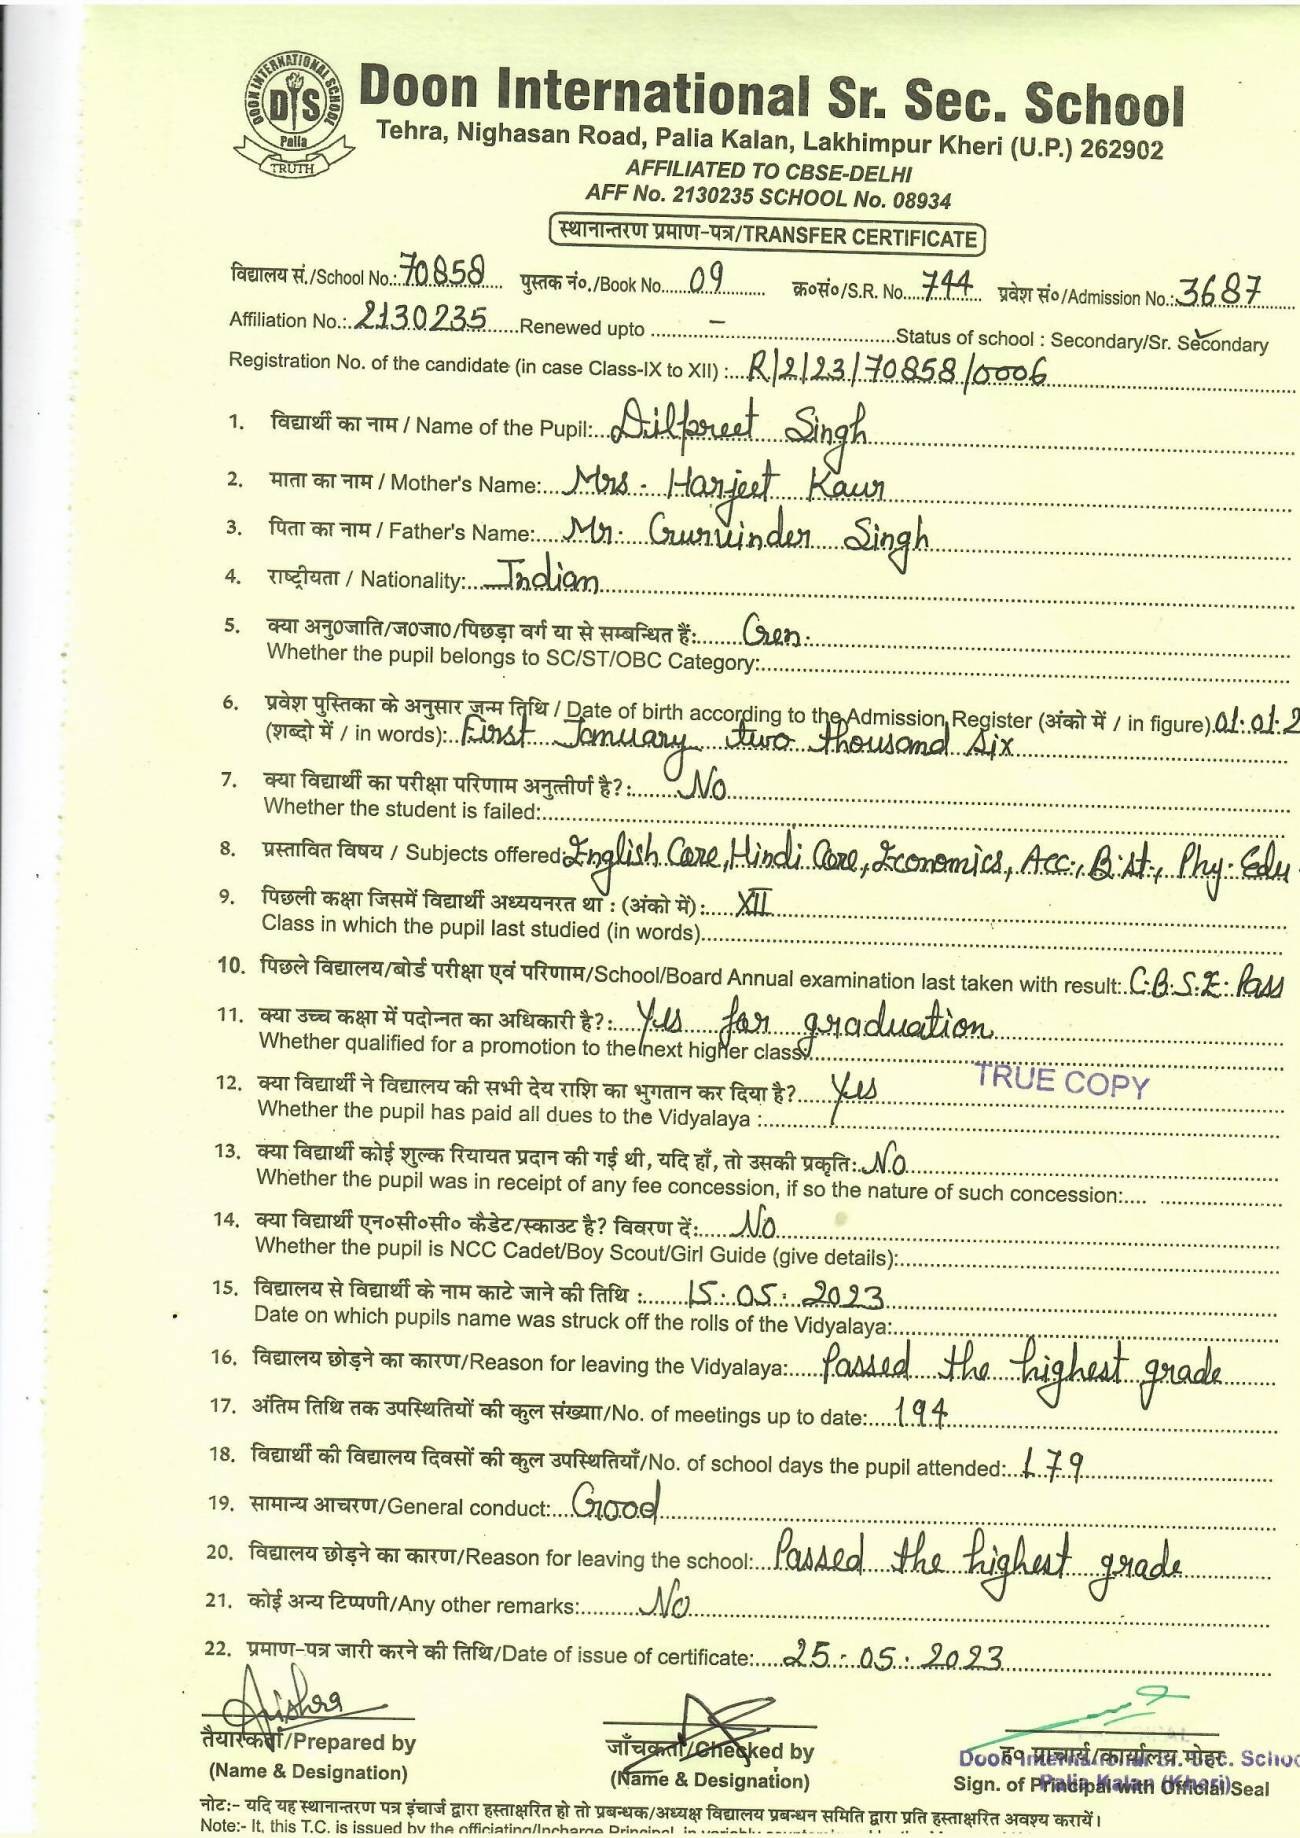 DOON INTERNATIONAL SCHOOL
DIS
Palia
TRUTH
Doon International Sr. Sec. School
Tehra, Nighasan Road, Palia Kalan, Lakhimpur Kheri (U.P.) 262902
AFFILIATED TO CBSE-DELHI
AFF No. 2130235 SCHOOL No. 08934
स्थानान्तरण प्रमाण-पत्र/TRANSFER CERTIFICATE
विद्यालय सं./School No.: 70858 पुस्तक नं०./Book No. 09 क्र०सं०/S.R. No. 744 प्रवेश सं०/Admission No.: 3687
Affiliation No.: 2130235 Renewed upto – Status of school : Secondary/Sr. Secondary
Registration No. of the candidate (in case Class-IX to XII) : R/2/23/70858/0006
1. विद्यार्थी का नाम / Name of the Pupil: Dilpreet Singh
2. माता का नाम / Mother's Name: Mrs. Harjeet Kaur
3. पिता का नाम / Father's Name: Mr. Gurvinder Singh
4. राष्ट्रीयता / Nationality: Indian
5. क्या अनु0जाति/ज0जा0/पिछड़ा वर्ग या से सम्बन्धित हैं: Gen.
Whether the pupil belongs to SC/ST/OBC Category:
6. प्रवेश पुस्तिका के अनुसार जन्म तिथि / Date of birth according to the Admission Register (अंको में / in figure) 01.01.2
(शब्दो में / in words): First January two thousand six
7. क्या विद्यार्थी का परीक्षा परिणाम अनुत्तीर्ण है?: No
Whether the student is failed:
8. प्रस्तावित विषय / Subjects offered: English Core, Hindi Core, Economics, Acc., B.st., Phy. Edu
9. पिछली कक्षा जिसमें विद्यार्थी अध्ययनरत था : (अंको में): XII
Class in which the pupil last studied (in words)
10. पिछले विद्यालय/बोर्ड परीक्षा एवं परिणाम/School/Board Annual examination last taken with result: C.B.S.E. Pass
11. क्या उच्च कक्षा में पदोन्नत का अधिकारी है?: Yes for graduation
Whether qualified for a promotion to the next higher class:
TRUE COPY
12. क्या विद्यार्थी ने विद्यालय की सभी देय राशि का भुगतान कर दिया है? Yes
Whether the pupil has paid all dues to the Vidyalaya :
13. क्या विद्यार्थी कोई शुल्क रियायत प्रदान की गई थी, यदि हाँ, तो उसकी प्रकृति: No
Whether the pupil was in receipt of any fee concession, if so the nature of such concession:
14. क्या विद्यार्थी एन०सी०सी० कैडेट/स्काउट है? विवरण दें: No
Whether the pupil is NCC Cadet/Boy Scout/Girl Guide (give details):
15. विद्यालय से विद्यार्थी के नाम काटे जाने की तिथि : 15.05.2023
Date on which pupils name was struck off the rolls of the Vidyalaya:
16. विद्यालय छोड़ने का कारण/Reason for leaving the Vidyalaya: Passed the highest grade
17. अंतिम तिथि तक उपस्थितियों की कुल संख्या/No. of meetings up to date: 194
18. विद्यार्थी की विद्यालय दिवसों की कुल उपस्थितियाँ/No. of school days the pupil attended: 179
19. सामान्य आचरण/General conduct: Good
20. विद्यालय छोड़ने का कारण/Reason for leaving the school: Passed the highest grade
21. कोई अन्य टिप्पणी/Any other remarks: No
22. प्रमाण-पत्र जारी करने की तिथि/Date of issue of certificate: 25.05.2023
तैयारकर्ता/Prepared by जाँचकर्ता/Checked by ह० प्राचार्य/कार्यालय मोहर
Doon International Sr. Sec. School
(Name & Designation) (Name & Designation) Sign. of Principal with Official Seal
Palia Kalan (Kheri)
नोटः- यदि यह स्थानान्तरण पत्र इंचार्ज द्वारा हस्ताक्षरित हो तो प्रबन्धक/अध्यक्ष विद्यालय प्रबन्धन समिति द्वारा प्रति हस्ताक्षरित अवश्य करायें।
Note:- It, this T.C. is issued by the officiating/Incharge Principal,